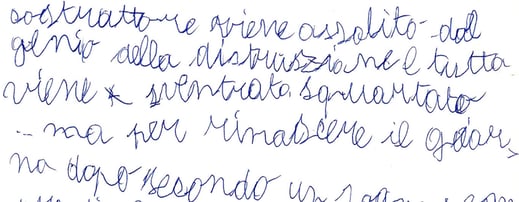 sottrattore viene assalito dal
genio della distruzione e tutta
viene sventrata squartata
... ma per rinascere il gior
no dopo secondo un